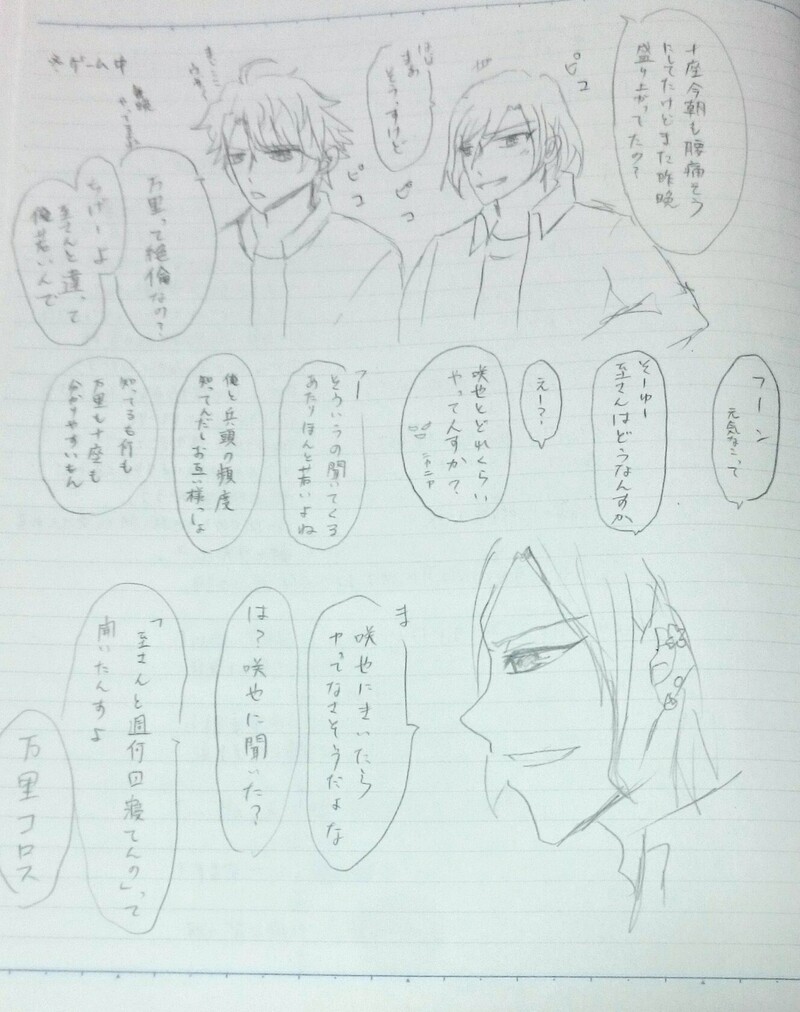 十座今朝も腰痛そう
にしてたけどまた昨晩
盛り上がってたの?
ピコ
はぁ
まあ
そうっすけど
ピコ
ピコ
※ゲーム中
万里って絶倫なの?
ちげーよ
至さんと違って
俺若いんで
フーン
元気なこって
そーゆー
至さんはどうなんすか
えー?
咲也とどれくらい
やってんすか?
ニヤニヤ
そういうの聞いてくる
あたりほんと若いよね
俺と兵頭の頻度
知ってんだしお互い様っしょ
知ってるも何も
万里も十座も
分かりやすいもん
ま
咲也にきいたら
ヤってなさそうだよな
は?咲也に聞いた?
「至さんと週何回寝てんの」って
聞いたんすよ
万里コロス